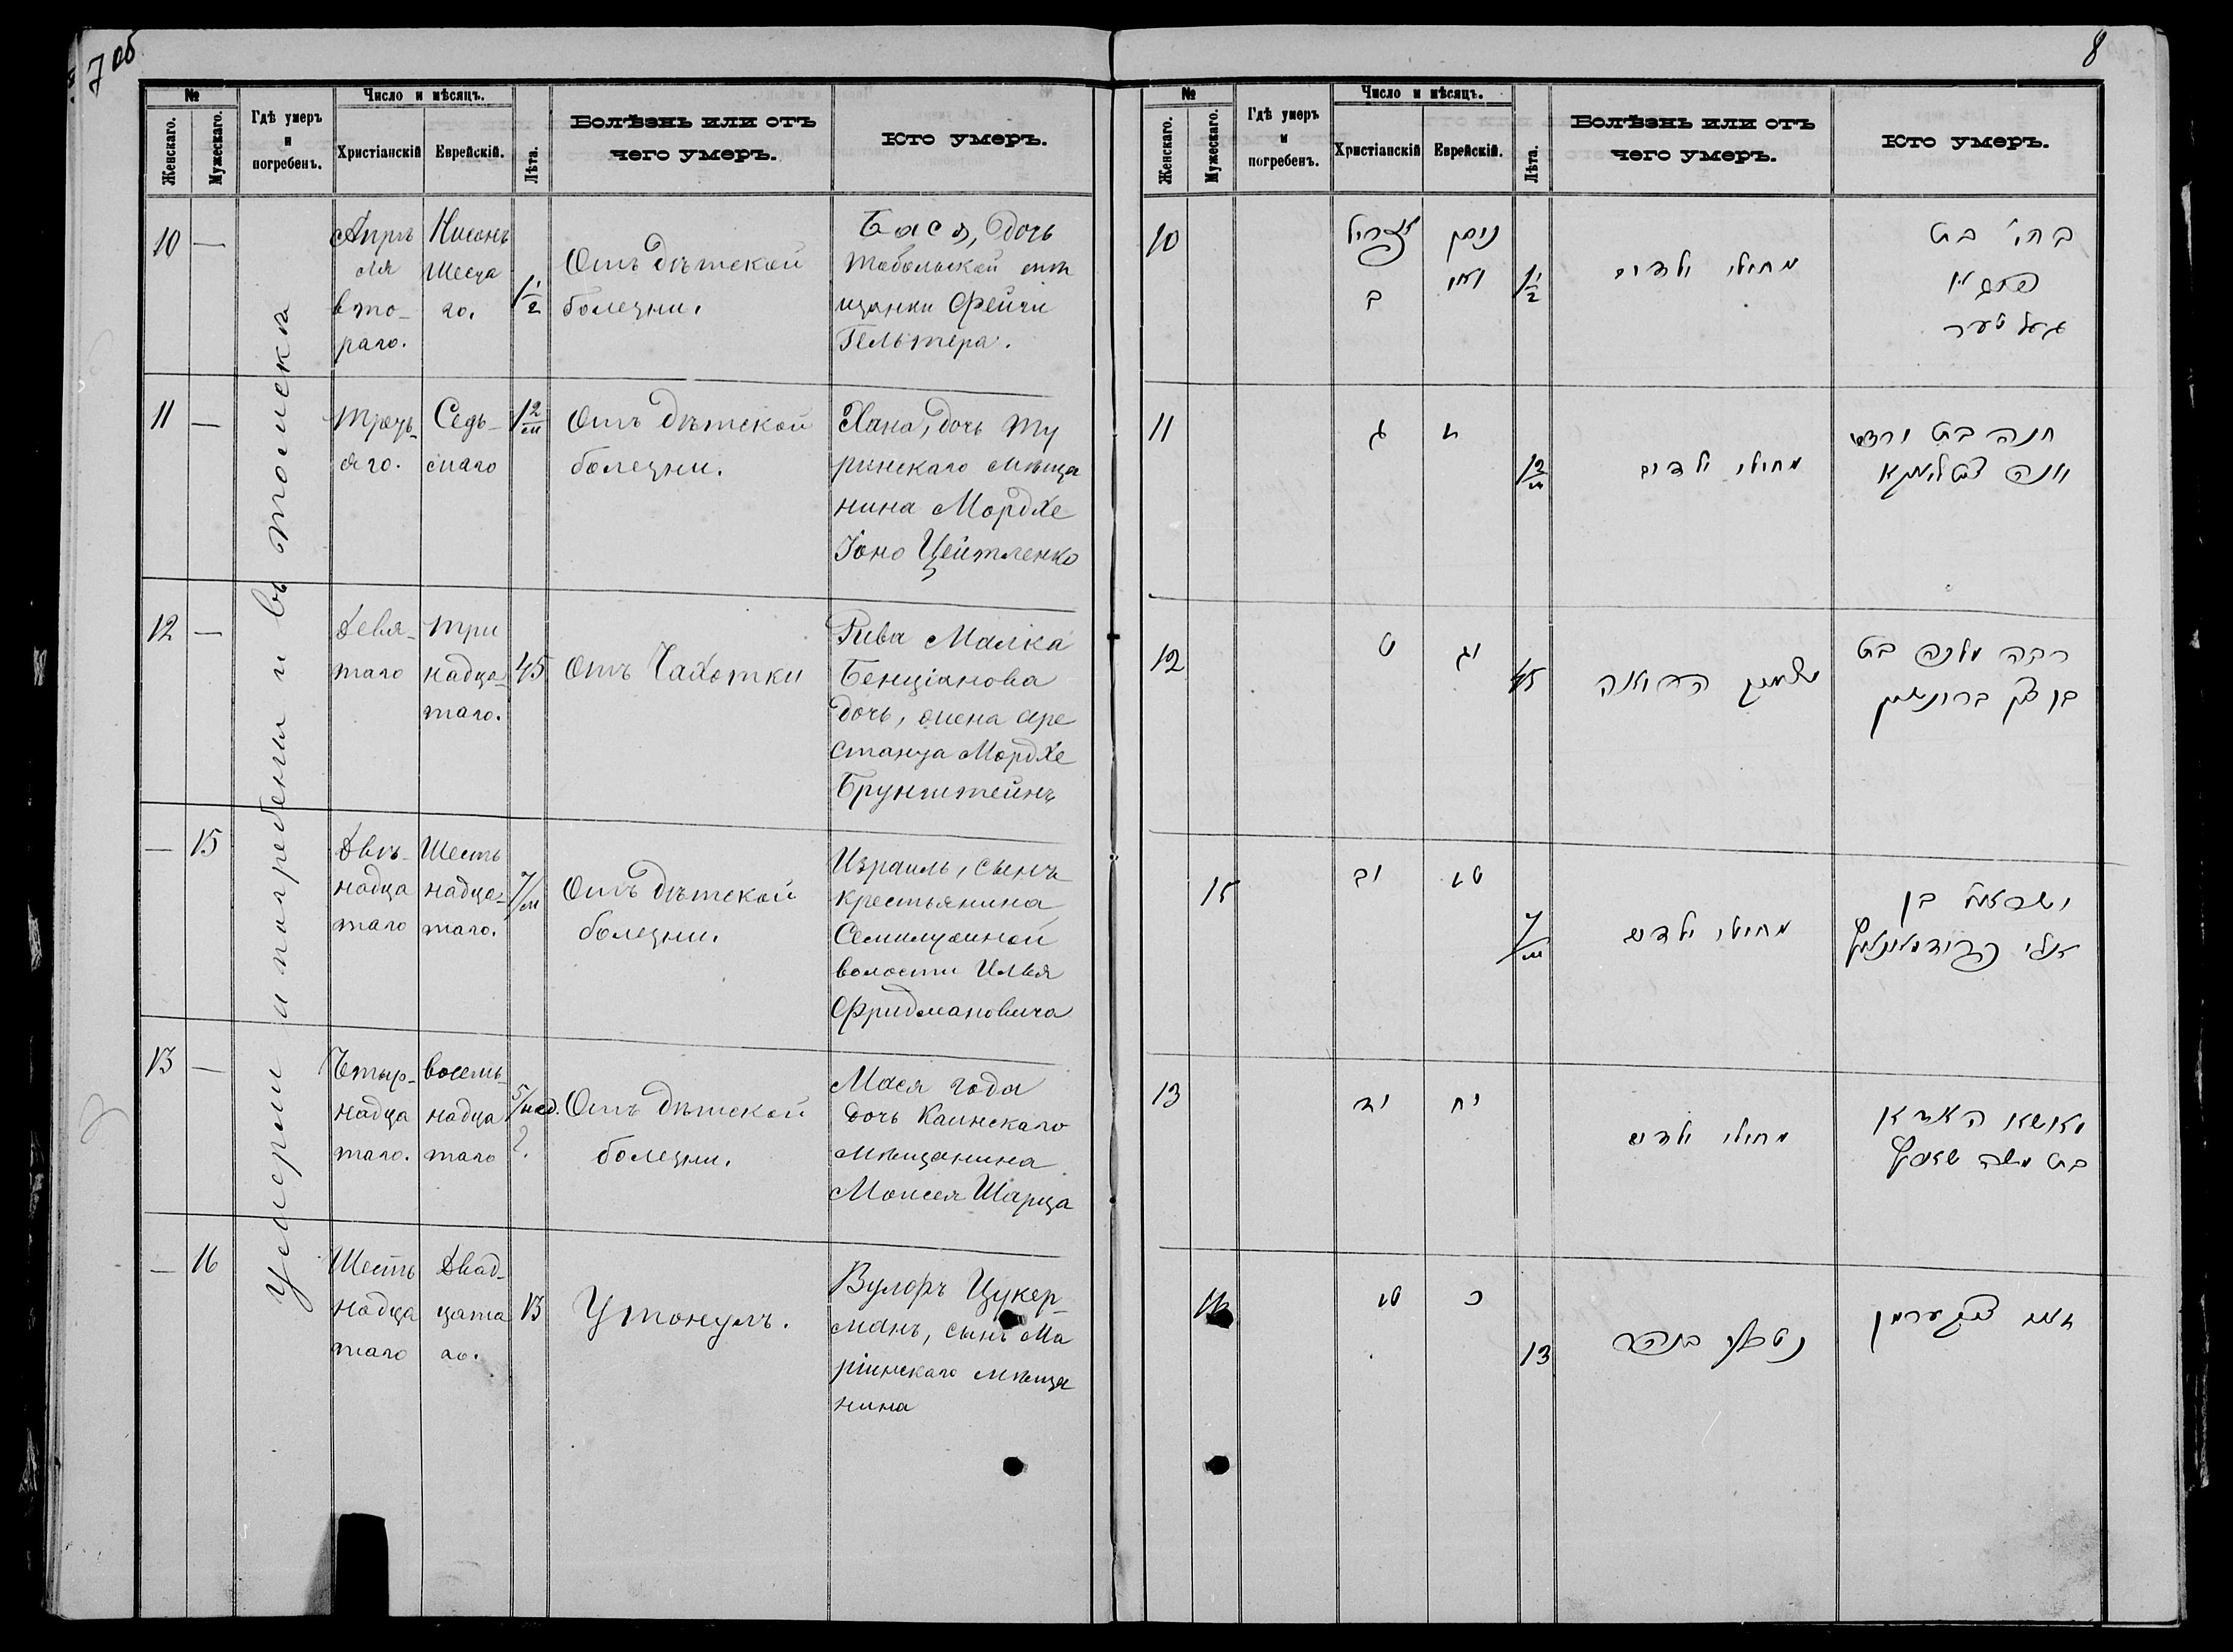 7 об
№
Женскаго.
Мужескаго.
Гдѣ умеръ
и
погребенъ.
Число и мѣсяцъ.
Христіанскій
Еврейскій.
Лѣта.
Болѣзнь или отъ
чего умеръ.
Кто умеръ.
Умерли и погребены въ Томска
10
—
Апрѣ
ля
вто-
раго.
Нисонъ
Шеста
го.
1 1/2
Отъ дѣтской
болезни.
Бася, дочь
Тобольской мѣ
щанки Фейги
Гельтера.
11
—
Треть-
яго.
Седь-
маго
1 2/м
Отъ дѣтской
болезни.
Хана, дочь Ту
ринскаго мѣща
нина Мордхе
Іоно Цейтленко
12
—
Девя-
таго
Три
надца-
таго.
45
Отъ Чахотки
Рива Малка
Бенціанова
дочь, жена аре
станта Мордхе
Брунштейнъ
—
15
Двѣ-
надца
таго
Шесть
надца-
таго.
7/м
Отъ дѣтской
болезни.
Израиль, сынъ
крестьянина
Семилужной
волости Илья
Фридмановича
13
—
Четыр-
надца
таго.
восемь-
надца
таго
5/нед.
Отъ дѣтской
болезни.
Мася года
дочь Каинскаго
мѣщанина
Моисея Шарца
—
16
Шесть
надца
таго
Двад-
цата
го.
13
Утонулъ.
Вулфъ Цукер-
манъ, сынъ Ма
ріинскаго мѣща
нина
8
№
Женскаго.
Мужескаго.
Гдѣ умеръ
и
погребенъ.
Число и мѣсяцъ.
Христіанскій
Еврейскій.
Лѣта.
Болѣзнь или отъ
чего умеръ.
Кто умеръ.
10
אפריל
ב
ניסן
1 1/2
מחולי ילדים
בת
געלטער
11
ג
1 2/м
מחולי ילדים
חנה בת
יונה
12
ט
יג
45
רבה מלכה בת
בן ציון ברונשטיין
15
יב
טז
7/м
מחולי ילדים
ישראל בן
אלי פרידמאנאוויץ
13
יד
יח
מחולי ילדים
מאשא האדא
בת משה שארץ
16
טז
כ
13
נטבע בנהר
וואלף צוקערמן